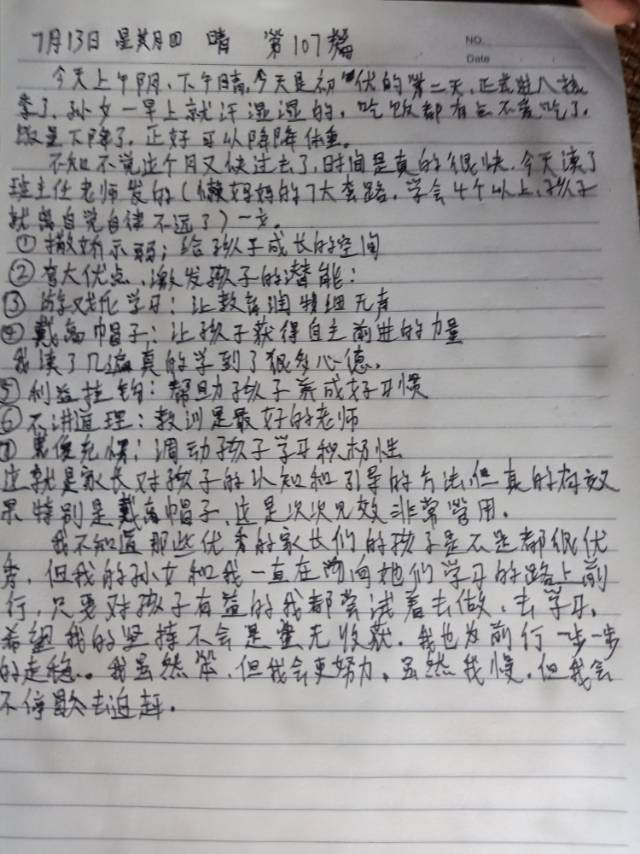 7月13日 星期四 晴 第107篇
NO.
Date
今天上午阴,下午晴,今天是初伏的第二天,正式进入桑拿
季了,孙女一早上就汗湿湿的,吃饭都有点不爱吃了,
饭量下降了,正好可以降降体重。
不知不说这个月又快过去了,时间是真的很快,今天读了
班主任老师发的(懒妈妈的7大套路,学会4个以上,孩子
就离自觉自律不远了)一文。
①撒娇示弱;给孩子成长的空间
②夸大优点,激发孩子的潜能:
③游戏化学习:让教育润物细无声
④戴高帽子:让孩子获得自主前进的力量
我读了几遍真的学到了很多心德,
⑤利益挂钩:帮助孩子养成好习惯
⑥不讲道理:教训是最好的老师
⑦装傻充愣:调动孩子学习积极性
这就是家长对孩子的认知和引导的方法,但真的有效
果特别是戴高帽子,这是次次见效非常管用。
我不知道那些优秀的家长们的孩子是不是都很优
秀,但我的孙女和我一直在向她们学习的路上前
行,只要对孩子有益的我都尝试着去做,去学习,
希望我的坚持不会是毫无收获,我也为前行一步一步
的走稳。我虽然笨,但我会更努力。虽然我慢,但我会
不停歇去追赶。